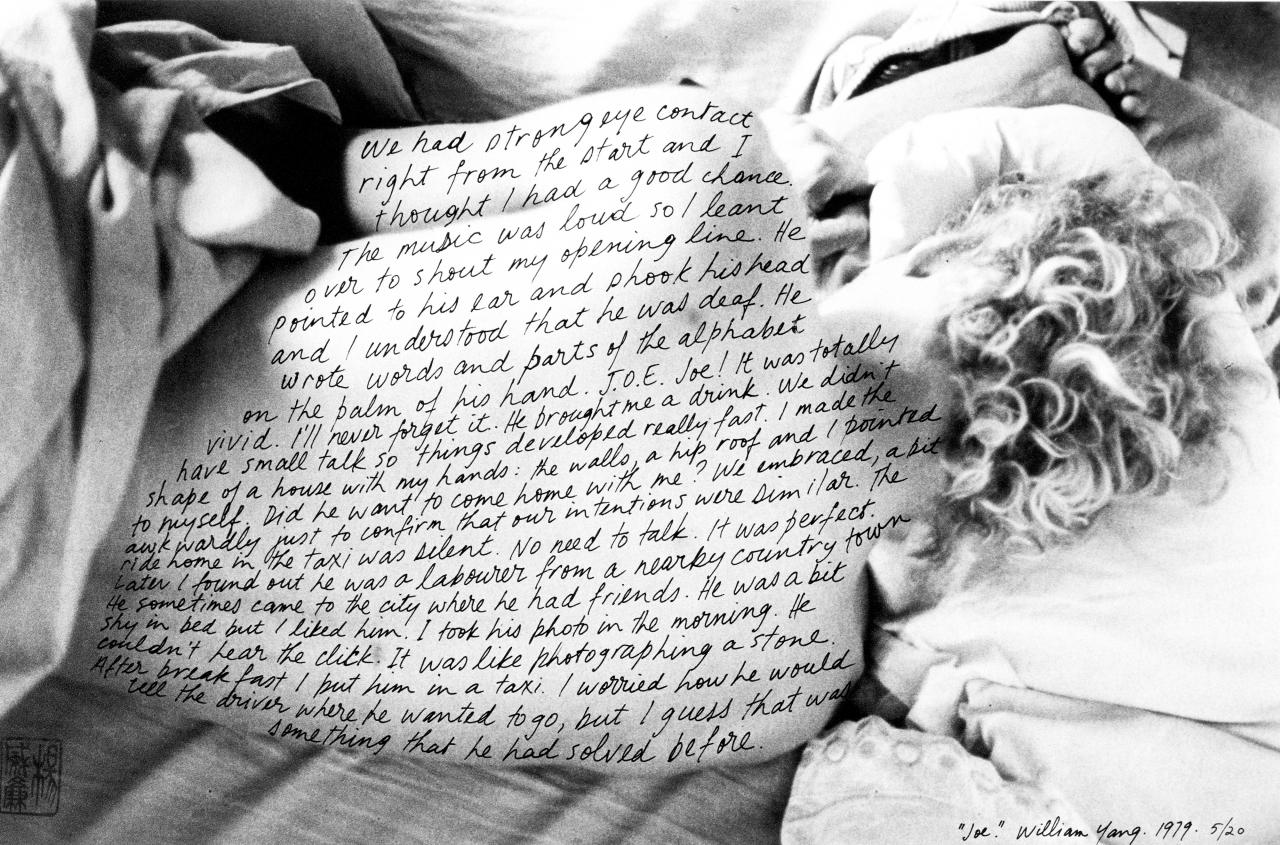 We had strong eye contact
right from the start and I
thought I had a good chance.
The music was loud so I leant
over to shout my opening line. He
pointed to his ear and shook his head
and I understood that he was deaf. He
wrote words and parts of the alphabet
on the palm of his hand. J.O.E. Joe! It was totally
vivid. I'll never forget it. He brought me a drink. We didn't
have small talk so things developed really fast. I made the
shape of a house with my hands: the walls, a hip roof and I pointed
to myself. Did he want to come home with me? We embraced, a bit
awkwardly just to confirm that our intentions were similar. The
ride home in the taxi was silent. No need to talk. It was perfect.
Later I found out he was a labourer from a nearby country town
He sometimes came to the city where he had friends. He was a bit
shy in bed but I liked him. I took his photo in the morning. He
couldn't hear the click. It was like photographing a stone.
After breakfast I put him in a taxi. I worried how he would
tell the driver where he wanted to go, but I guess that was
something that he had solved before.
楊威廉
"Joe." William Yang. 1979. 5/20